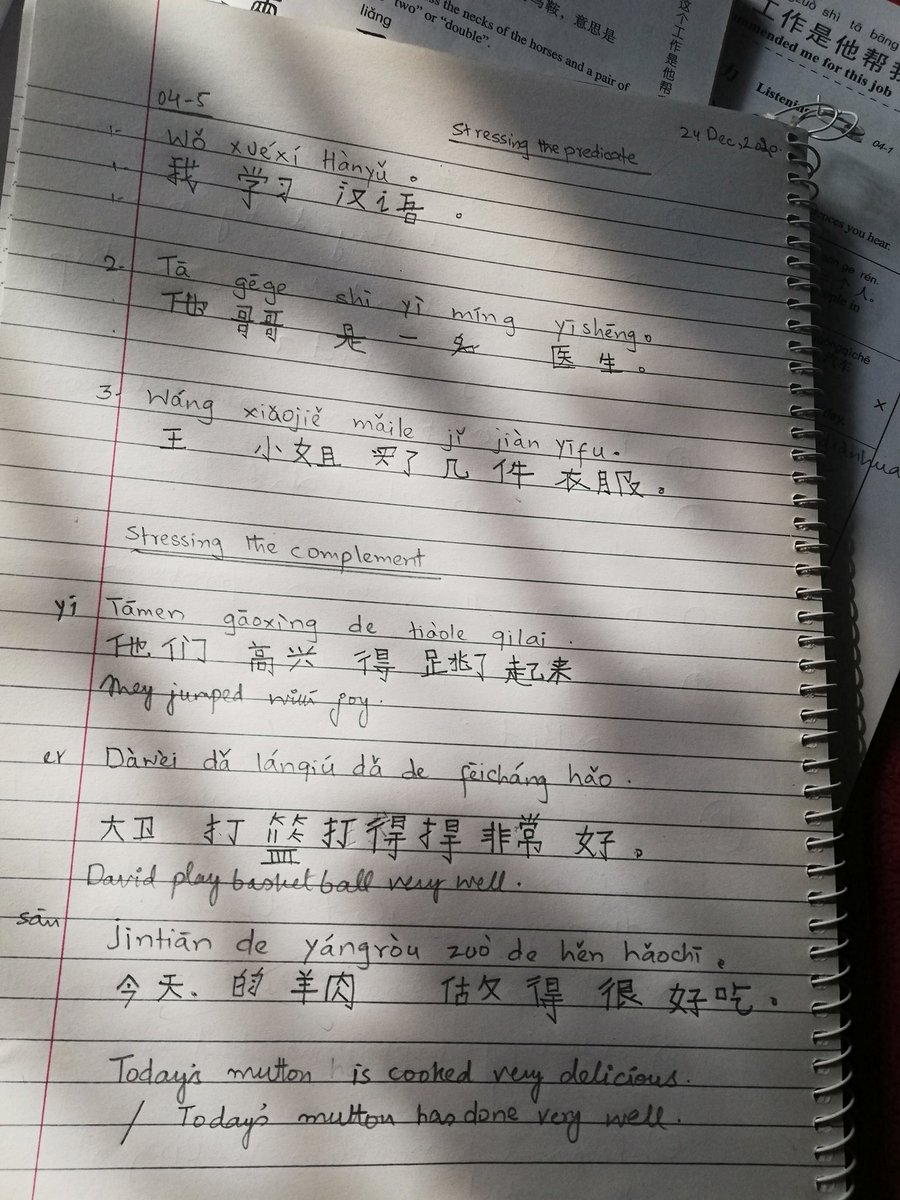 liǎng
马鞍，意思是
ss the necks of the horses and a pair of
two" or "double".
这个工作是他帮
zuò shì tā bāng
工作是他帮我
mmended me for this job
力
Listening
04-1
ences you hear.
rén.
个人。
ople in
qìchē
04-5
Stressing the predicate
24 Dec, 2020.
1- Wǒ xuéxí Hànyǔ 。
1- 我 学习 汉语 。
1-
2- Tā gēge shì yī míng yīshēng。
他 哥哥 是 一 名 医生。
3- Wáng xiǎojiě mǎile jǐ jiàn yīfu.
王 小姐 买了 几 件 衣服。
Stressing the complement
yī Tāmen gāoxìng de tiàole qilai.
他们 高兴 得 跳了 起来
They jumped with joy.
er Dàwèi dǎ lánqiú dǎ de fēicháng hǎo.
大卫 打 篮 打得得 非常 好。
David play basketball very well.
sān Jīntiān de yángròu zuò de hěn hǎochī.
今天. 的 羊肉 做 得 很 好吃。
Today's mutton is cooked very delicious.
/ Today's mutton has done very well.